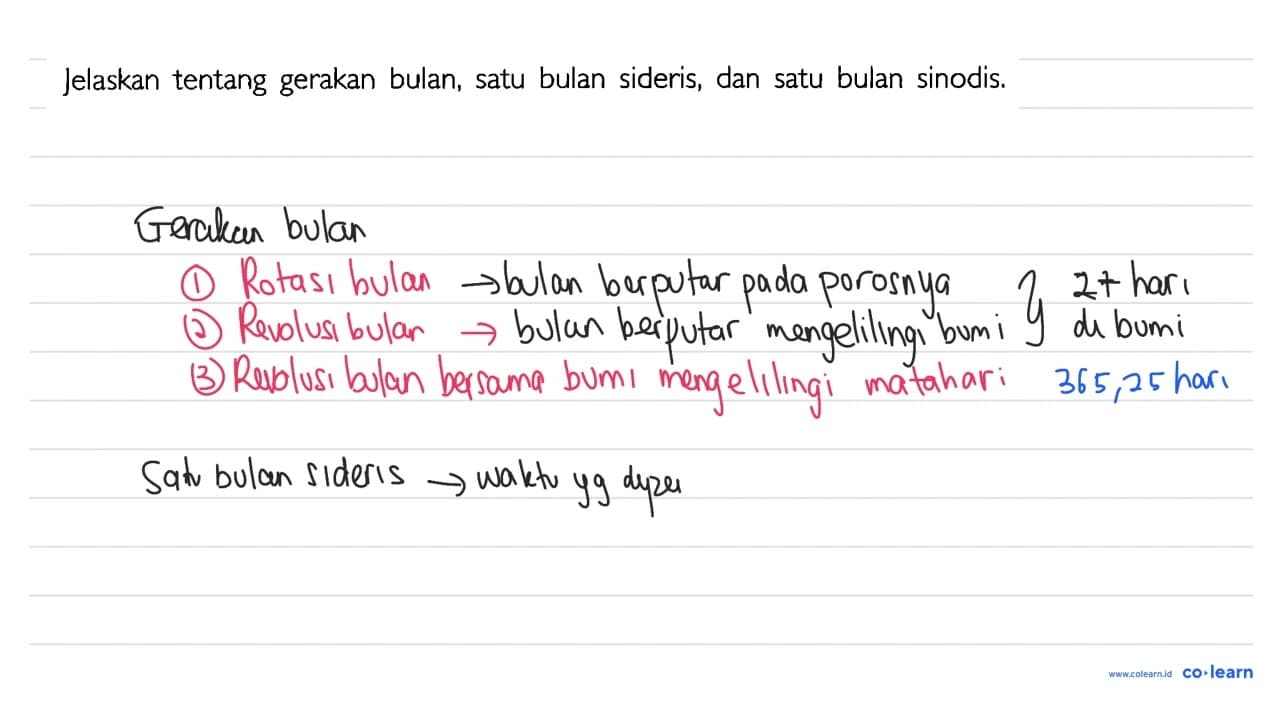 Jelaskan tentang gerakan bulan, satu bulan sideris, dan satu bulan sinodis.
Gerakan bulan
① Rotasi bulan → bulan berputar pada porosnya } 27 hari
② Revolusi bulan → bulan berputar mengelilingi bumi } di bumi
③ Revolusi bulan bersama bumi mengelilingi matahari 365,25 hari
Satu bulan sideris → waktu yg diper
www.colearn.id co·learn